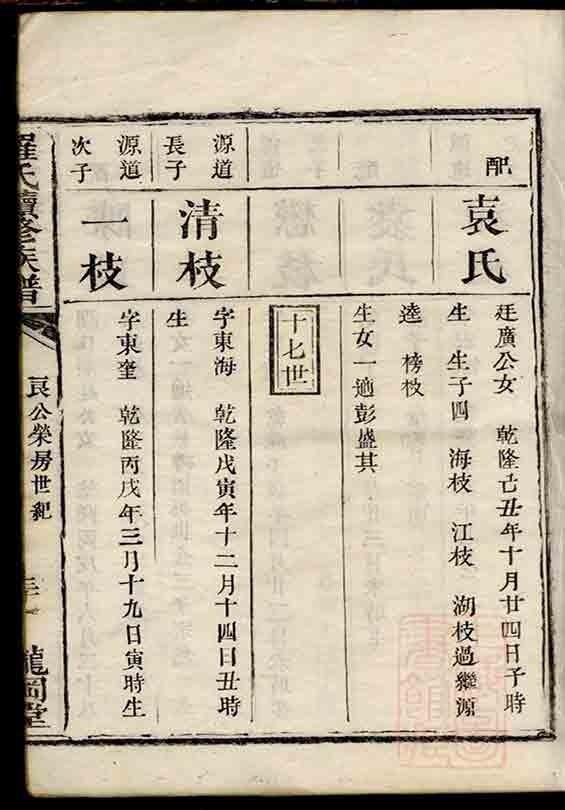 配
袁氏
廷廣公女 乾隆己丑年十月廿四日子時
生 生子四 海枝 江枝 湖枝過繼源
逵 榜枝
生女一適彭盛其
十七世
源道
長子
清枝
字東海 乾隆戊寅年十二月十四日丑時
生
源道
次子
一枝
字東奎 乾隆丙戌年三月十九日寅時生
羅氏續修族譜
良公榮房世紀
龍岡堂